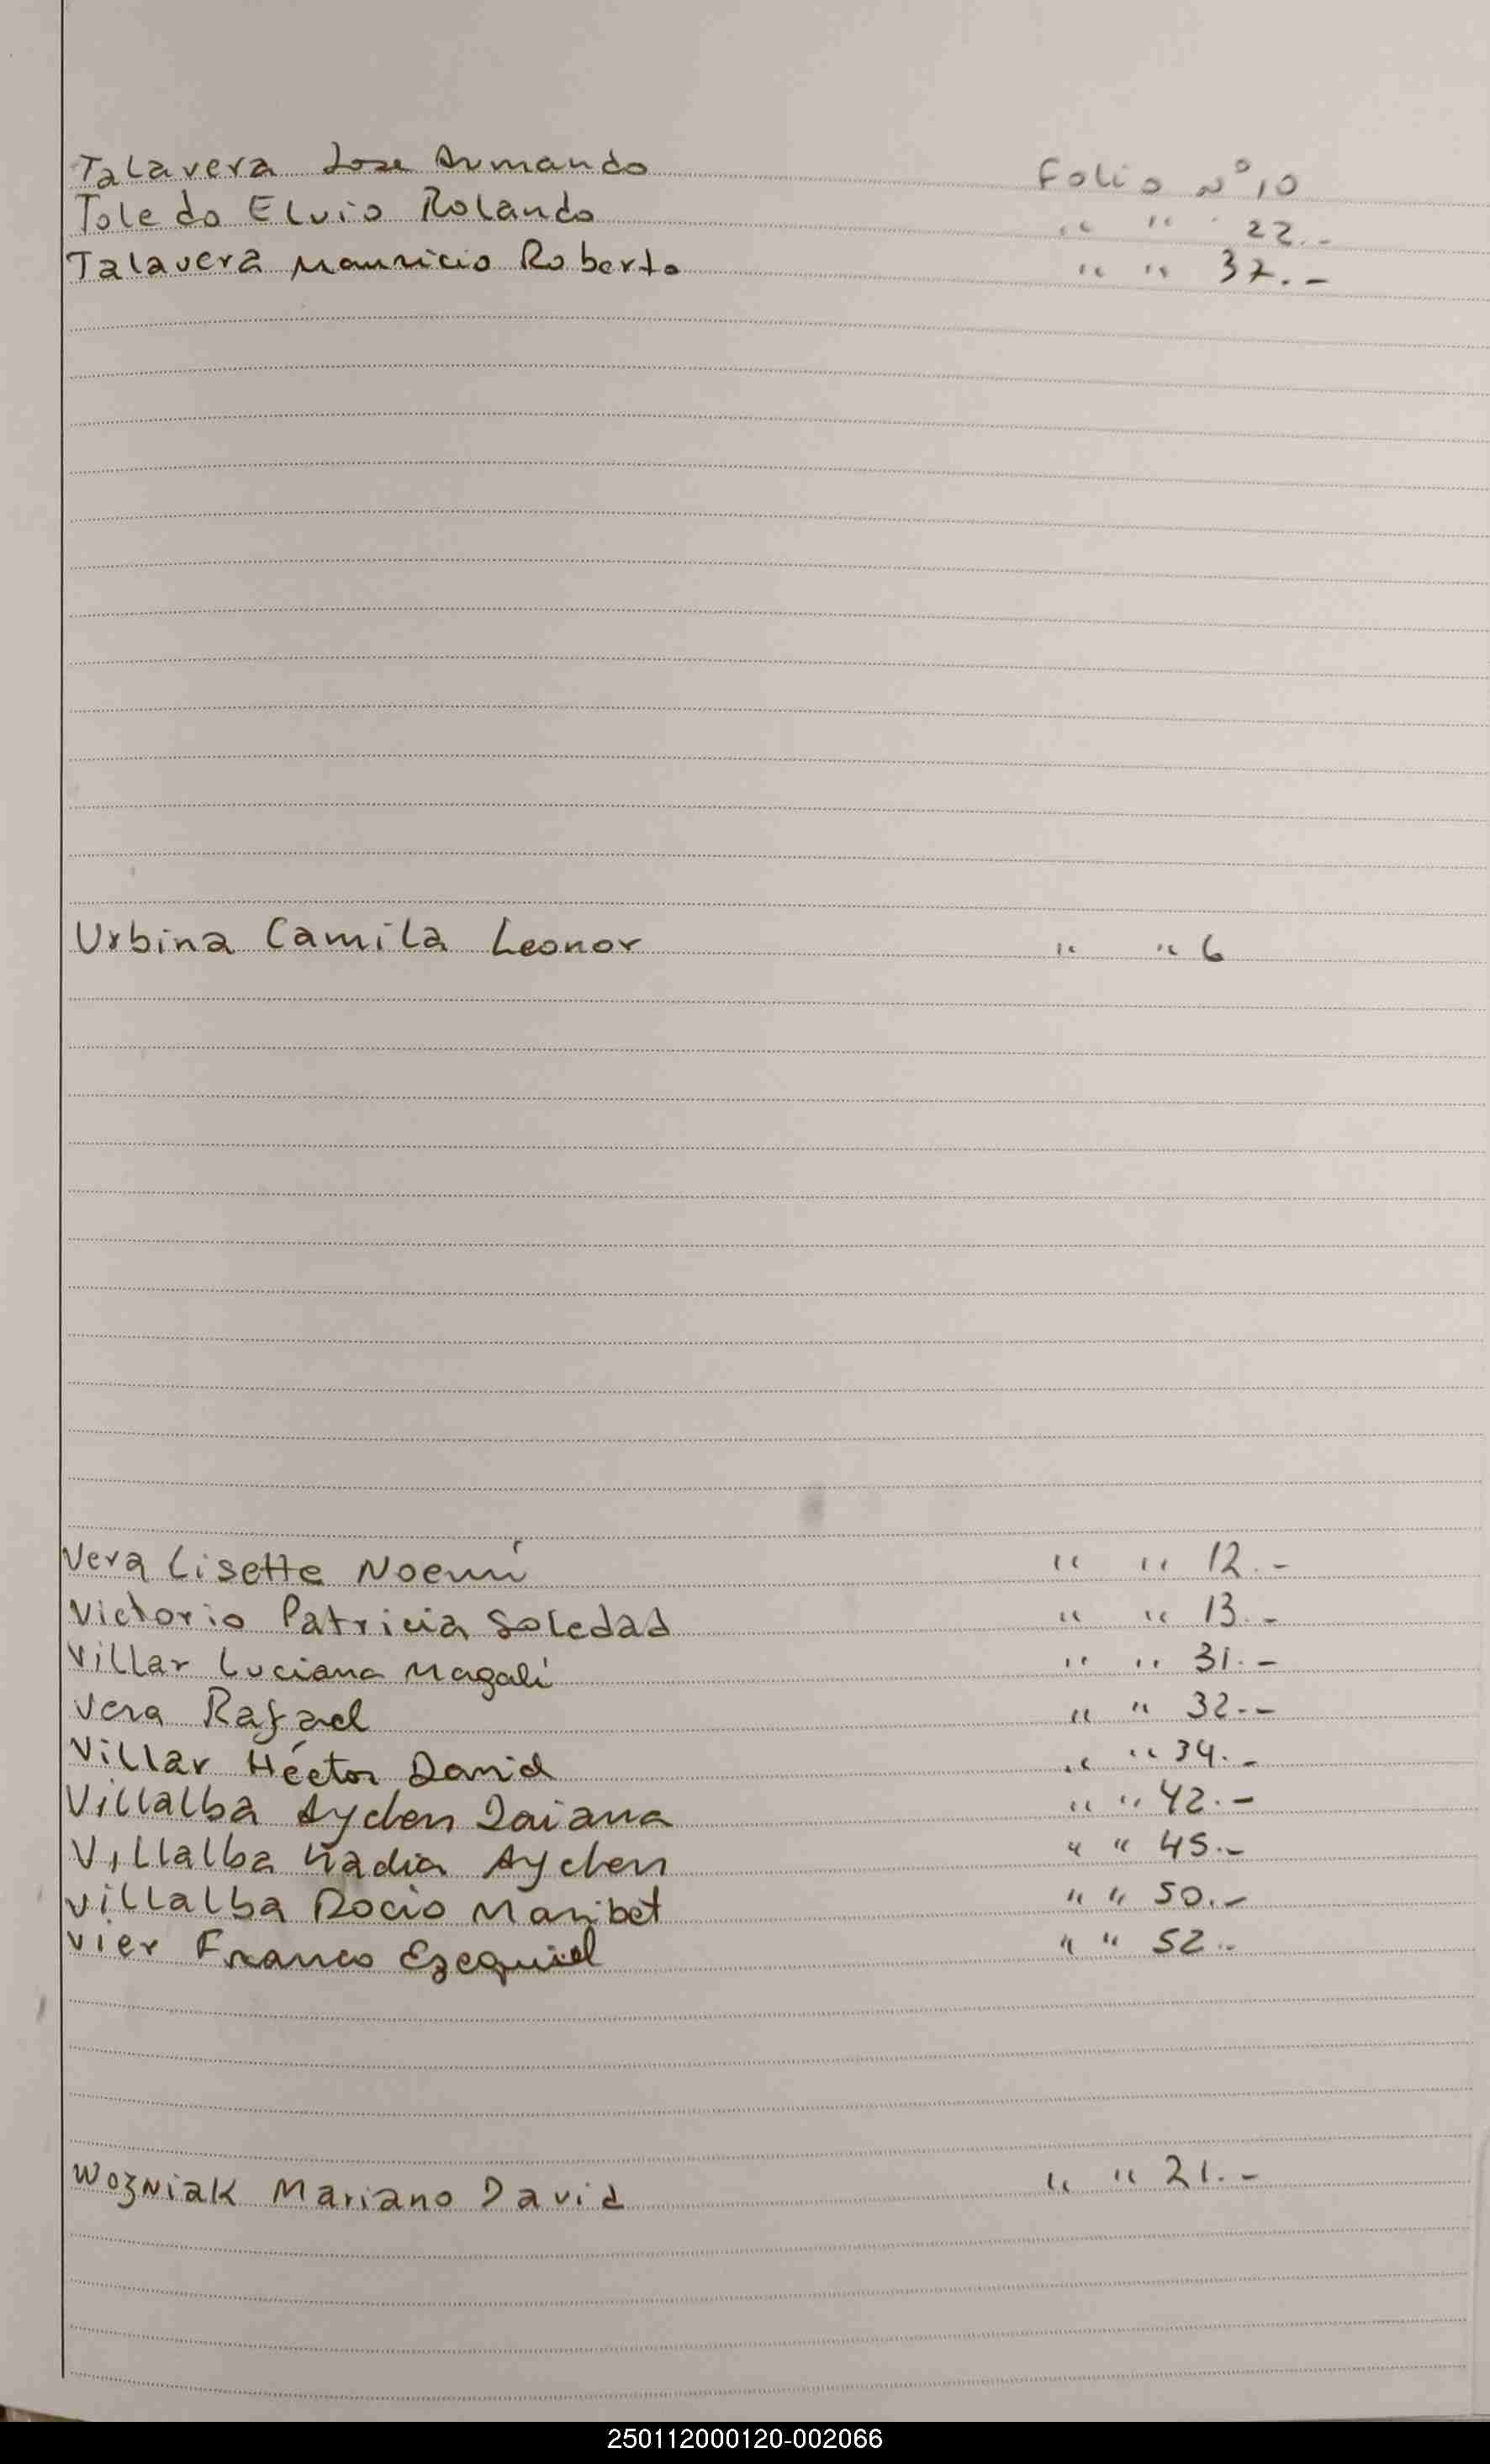 Talavera Jose Armando Folio N° 10
Toledo Elvio Rolando " " 22.-
Talavera Mauricio Roberto " " 37.-
Urbina Camila Leonor " " 6
Vera Lisette Noemí " " 12.-
Victorio Patricia Soledad " " 13.-
Villar Luciana Magalí " " 31.-
Vera Rafael " " 32.--
Villar Héctor David " " 34.-
Villalba Aychen Daiana " " 42.-
Villalba Nadia Aychen " " 45.-
Villalba Rocio Maribet " " 50.-
Vier Franco Ezequiel " " 52.-
Wozniak Mariano David " " 21.-
250112000120-002066